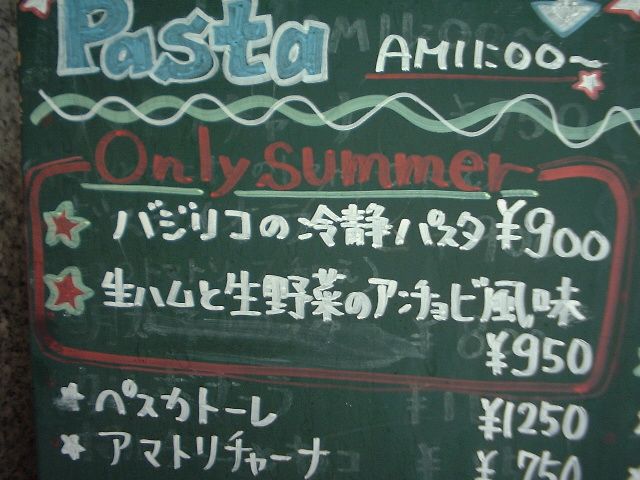 Pasta AM11:00~
Only Summer
バジリコの冷静パスタ ¥900
生ハムと生野菜のアンチョビ風味
¥950
ペスカトーレ ¥1250
アマトリチャーナ ¥750